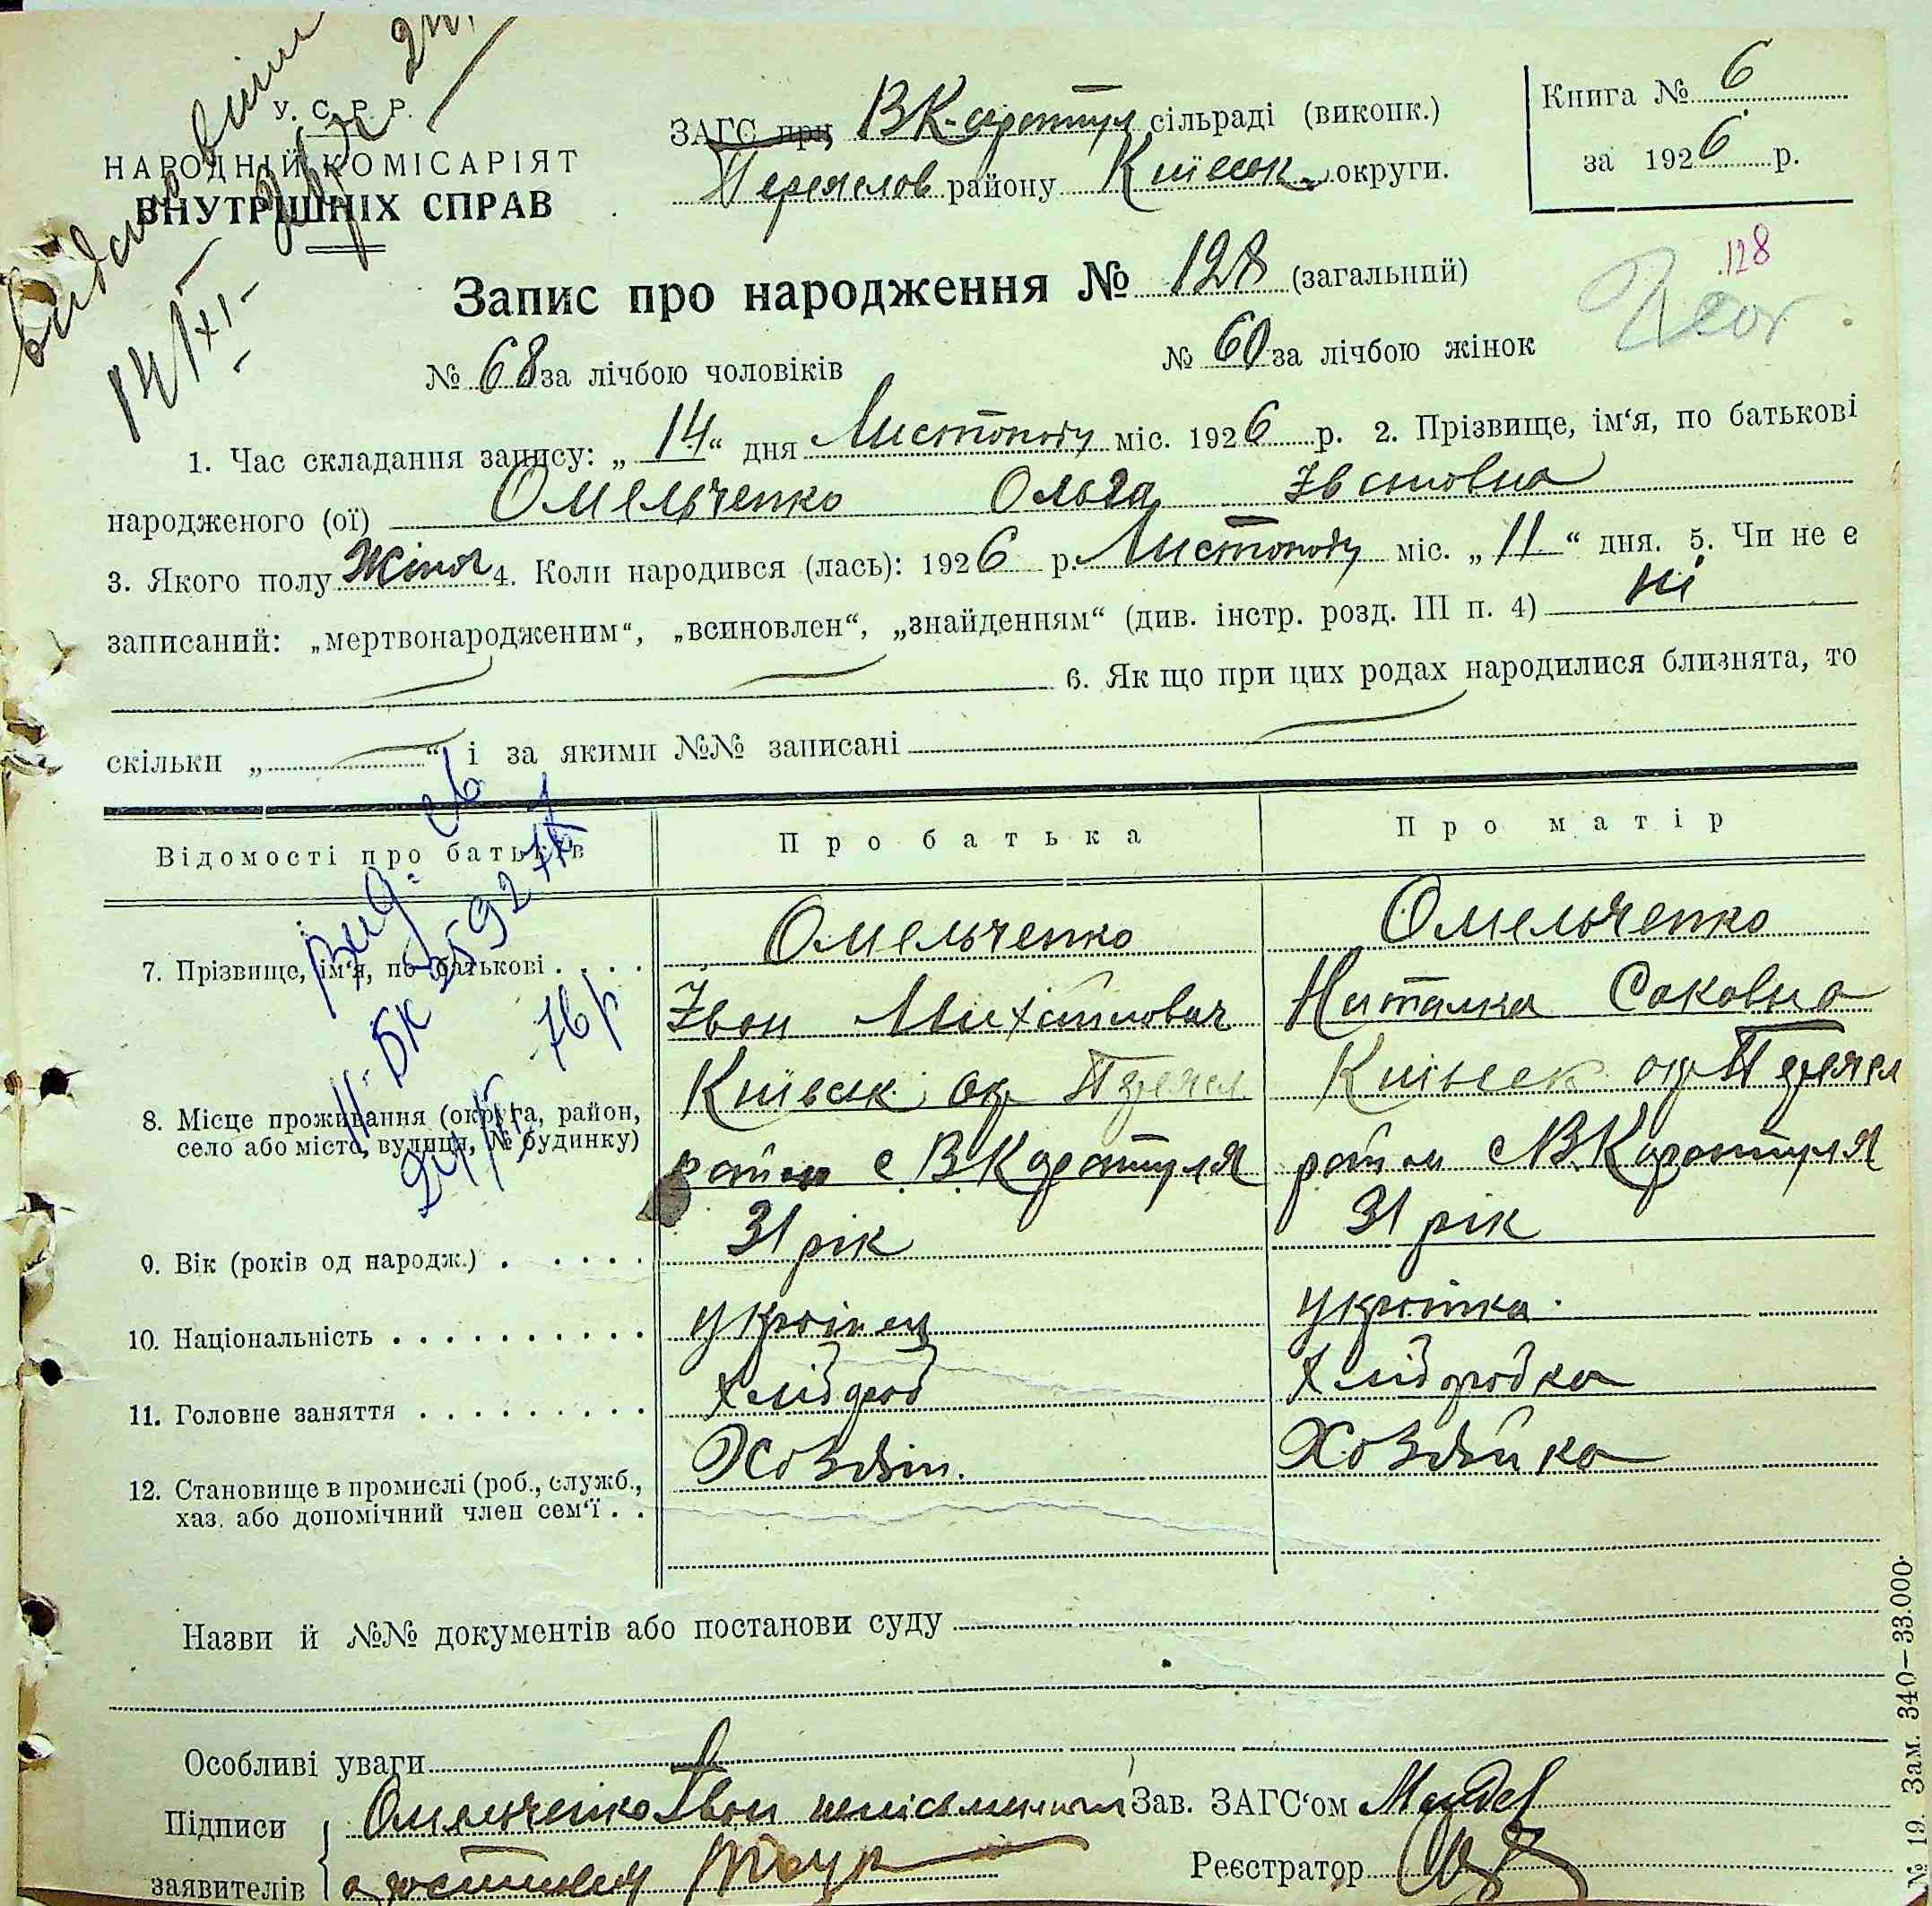 У. С. Р. Р.
НАРОДНІЙ КОМІСАРІЯТ
ВНУТРІШНІХ СПРАВ
ЗАГС при В К-аратул сільраді (виконк.)
Переяслов району Київськ округи.
Книга № 6
за 1926 р.
14/XI-
Запис про народження № 128 (загальний)
128
№ 68 за лічбою чоловіків
№ 60 за лічбою жінок
1. Час складання запису: „ 14 “ дня Листопаду міс. 1926 р. 2. Прізвище, ім‘я, по батькові
народженого (ої) Омельченко Ольга Івановна
3. Якого полу Жіноч 4. Коли народився (лась): 1926 р. Листопаду міс. „ 11 “ дня. 5. Чи не є
записаний: „мертвонародженим“, „всиновлен“, „знайденням“ (див. інстр. розд. III п. 4) ні
6. Як що при цих родах народилися близнята, то
скільки „ “ і за якими №№ записані
Відомості про батьків
Про батька
Про матір
7. Прізвище, ім‘я, по батькові . . . .
Омельченко
Іван Михайлович
Омельченко
Наталка Саковна
8. Місце проживання (округа, район,
село або місто, вулиця, № будинку)
Київськ ок Переясл
район с. В.Каратуля
Київськ ок Переясл
район с В.Каратуля
9. Вік (років од народж.) . . . . .
31 рік
31 рік
10. Національність . . . . . . . . . .
українец
українка.
11. Головне заняття . . . . . . . . .
хлібороб
хліборобка
12. Становище в промислі (роб., служб.,
хаз. або допомічний член сем‘ї . .
Хозяін.
Хозяйка
Назви й №№ документів або постанови суду
Особливі уваги
Підписи
заявителів
Омельченко Іван неписьменний
Зав. ЗАГС‘ом
Реєстратор
№ 19. Зам. 340—33.000.